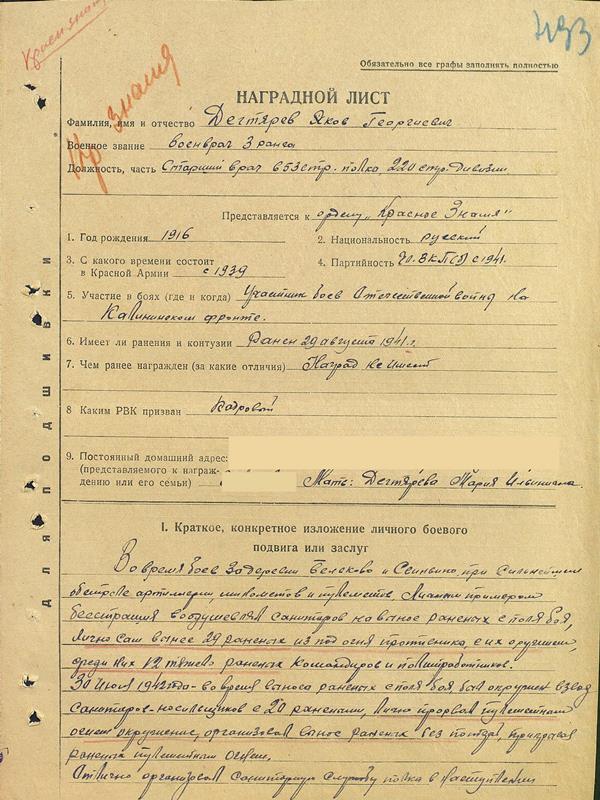 Краснознам
493
Кр знамя
Обязательно все графы заполнять полностью
НАГРАДНОЙ ЛИСТ
Фамилия, имя и отчество Дегтярев Яков Георгиевич
Военное звание военврач 3 ранга
Должность, часть Старший врач 653 стр. полка, 220 стр. дивизии
Представляется к ордену „Красное Знамя"
1. Год рождения 1916
2. Национальность русский
3. С какого времени состоит
в Красной Армии с 1939
4. Партийность Чл. ВКП(б) с 1941.
5. Участие в боях (где и когда) Участник боев Отечественной войны на
Калининском фронте.
6. Имеет ли ранения и контузии Ранен 29 августа 1941 г.
7. Чем ранее награжден (за какие отличия) Наград не имеет
8 Каким РВК призван Кадровый
9. Постоянный домашний адрес:
(представляемого к награж-
дению или его семьи) Мать: Дегтярева Мария Ильинична.
для подшивки
I. Краткое, конкретное изложение личного боевого
подвига или заслуг
Во время боев за деревни Белсково и при сильнейшем
обстреле артиллерии, минометов и пулеметов, личным примером
бесстрашия воодушевлял санитаров на вынос раненых с поля боя,
лично сам вынес 29 раненых из под огня противника, с их оружием,
среди них 12 тяжело раненых командиров и политработников.
30 июля 1942 года - во время выноса раненых с поля боя был окружен взвод
санитаров-носильщиков с 20 ранеными, лично прорвал пулеметным
огнем окружение, организовал вынос раненых без потерь, прикрывая
раненых пулеметным огнем.
Отлично организовал санитарную службу полка в наступлении